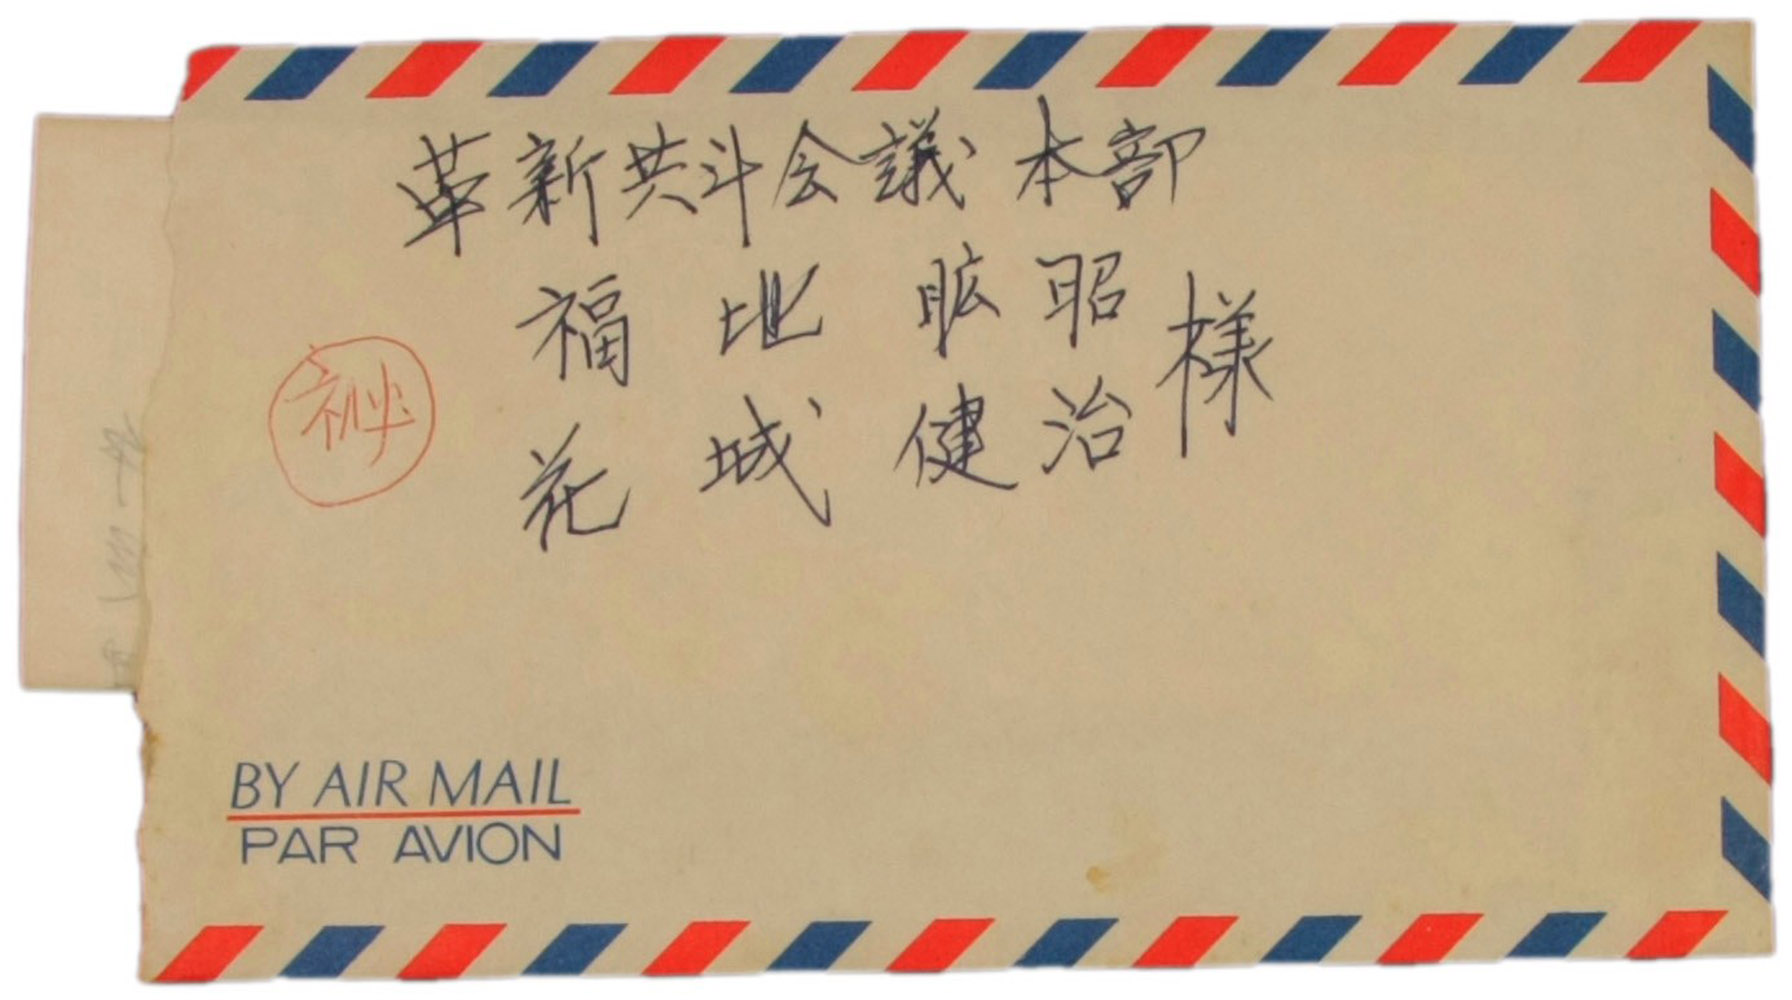 革新共斗会議本部
福地昿昭様
花城健治
㊙
BY AIR MAIL
PAR AVION